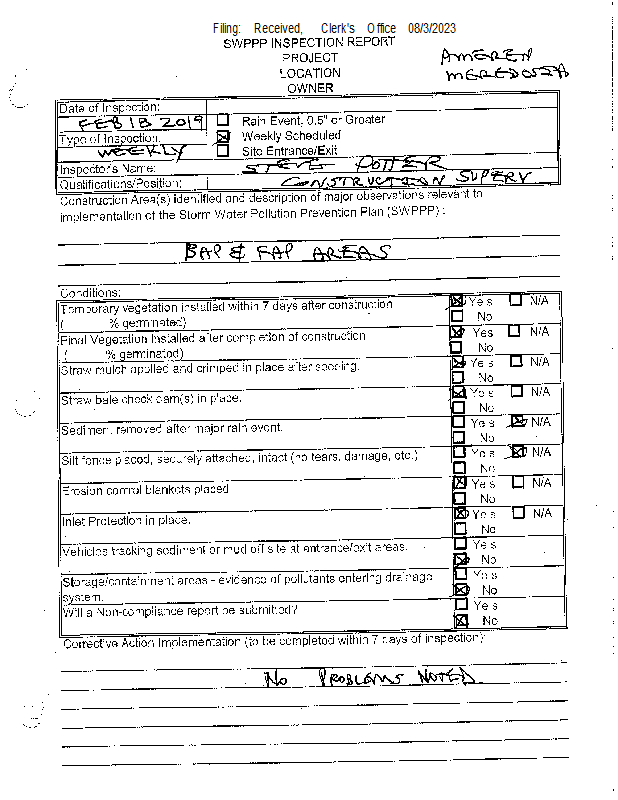 Filing: Received, Clerk's Office 08/3/2023
SWPPP INSPECTION REPORT
PROJECT
LOCATION
OWNER
AMEREN
MEREDOSIA
Date of Inspection:
FEB 18 2019
☐ Rain Event, 0.5" or Greater
Type of Inspection:
☒ Weekly Scheduled
WEEKLY
☐ Site Entrance/Exit
Inspector's Name: STEVE
Qualifications/Position: CONSTRUCTION SUPERV
Construction Area(s) identified and description of major observations relevant to
implementation of the Storm Water Pollution Prevention Plan (SWPPP) :
BAP & FAP AREAS
Conditions:
Temporary vegetation installed within 7 days after construction ☒ Yes ☐ N/A
( % germinated) ☐ No
Final Vegetation Installed after completion of construction ☒ Yes ☐ N/A
( % germinated) ☐ No
Straw mulch applied and crimped in place after seeding. ☒ Yes ☐ N/A
☐ No
Straw bale check dam(s) in place. ☒ Yes ☐ N/A
☐ No
Sediment removed after major rain event. ☐ Yes ☒ N/A
☐ No
Silt fence placed, securely attached, intact (no tears, damage, etc.) ☐ Yes ☒ N/A
☐ No
Erosion control blankets placed ☒ Yes ☐ N/A
☐ No
Inlet Protection in place. ☒ Yes ☐ N/A
☐ No
Vehicles tracking sediment or mud off site at entrance/exit areas. ☐ Yes
☒ No
Storage/containment areas - evidence of pollutants entering drainage ☐ Yes
system. ☒ No
Will a Non-compliance report be submitted? ☐ Yes
☒ No
Corrective Action Implementation (to be completed within 7 days of inspection):
NO PROBLEMS NOTED